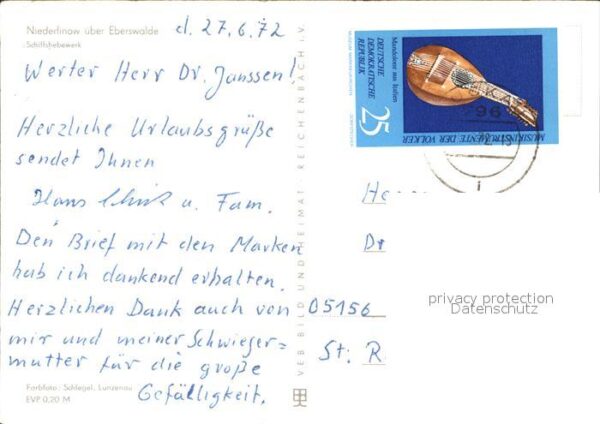 Niederfinow über Eberswalde
Schiffshebewerk
d. 27.6.72
Werter Herr Dr. Janssen!
Herzliche Urlaubsgrüße
sendet Ihnen
Hans u. Fam.
Den Brief mit den Marken
hab ich dankend erhalten.
Herzlichen Dank auch von
mir und meiner Schwieger=
mutter für die große
Gefälligkeit.
Farbfoto: Schlegel, Lunzenau
EVP 0,20 M
VEB BILD UND HEIMAT REICHENBACH i. V.
MUSIKINSTRUMENTE DER VÖLKER
Mandoline aus Italien
DEUTSCHE
DEMOKRATISCHE
REPUBLIK
25
He
Dr
05156
St: R
privacy protection
Datenschutz